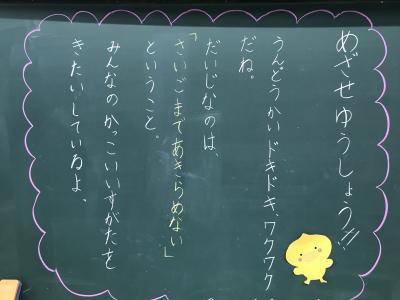 めざせゆうしょう!!
うんどうかいドキドキ、ワクワク
だね。
だいじなのは、
「さいごまであきらめない」
ということ。
みんなのかっこいいすがたを
きたいしているよ。